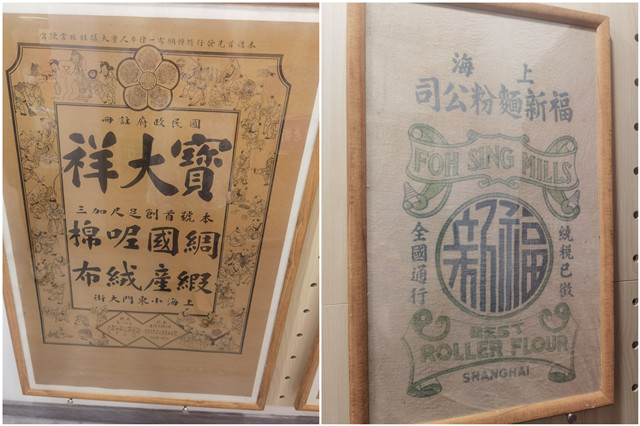 國民政府註冊
寶大祥
本號首創足尺加三
綢國呢棉
緞產絨布
上海小東門大街
上海
福新麵粉公司
FOH SING MILLS
統稅已徵
福新
全國通行
BEST
ROLLER FLOUR
SHANGHAI